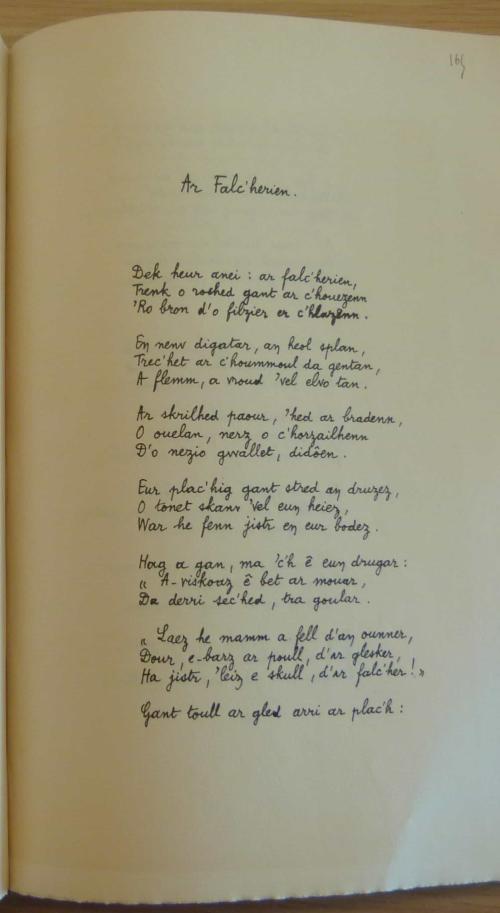 169
Ar Falc'herien.
Dek heur anei : ar falc'herien,
Trenk o roshed gant ar c'houezenn
'Ro bron d'o filzier er c'hlazenn.
En nenv digatar, an heol splan,
Trec'het ar c'hoummoul da gentan,
A flemm, a vroud 'vel elvo tan.
Ar skrilhed paour, 'hed ar bradenn,
O ouelan, nerz o c'horzailhenn
D'o nezio gwallet, didôen.
Eur plac'hig gant stred an druzez,
O tonet skanv 'vel eun heiez,
War he fenn jistr en eur bodez.
Hag a gan, ma 'c'h ê eun drugar :
« A-viskoaz ê bet ar mouar,
Da derri sec'hed, tra goular.
„ Laez he mamm a fell d'an ounner,
Dour, e-barz ar poull, d'ar glesker,
Ha jistr, 'leiz e skull, d'ar falc'her ! »
Gant toull ar gled arri ar plac'h :